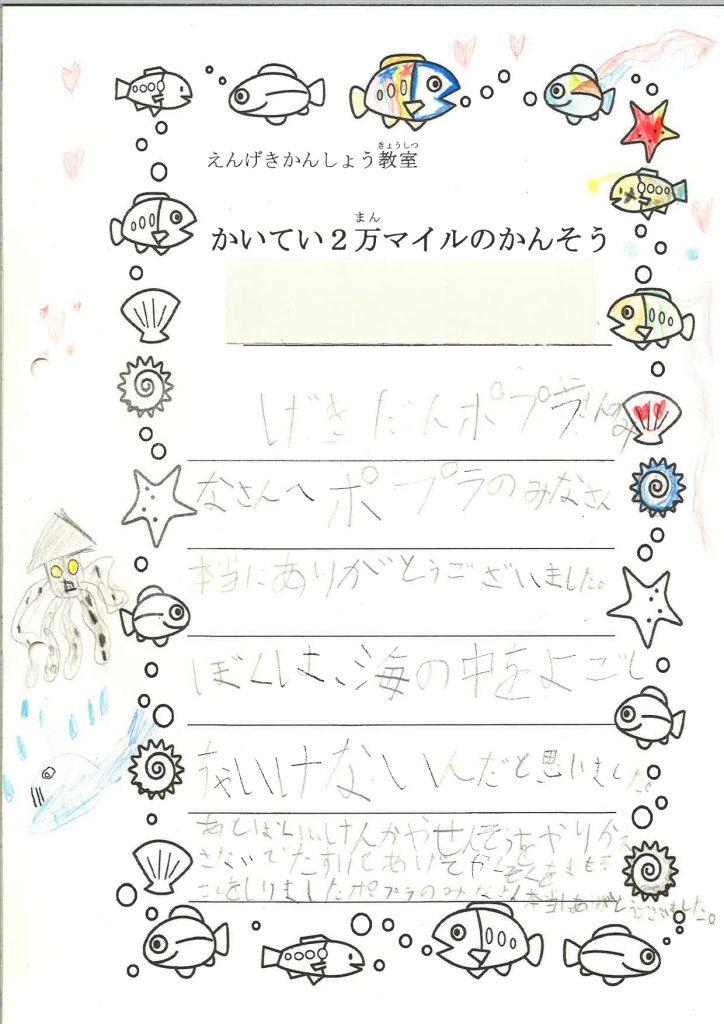 えんげきかんしょう教室
きょうしつ
かいてい２万マイルのかんそう
まん
げきだんポプラさんのみ
なさんへ ポプラのみなさん
本当にありがとうございました。
ぼくは、海の中をよごし
ちゃいけないんだと思いました。
あとぼくはけんかやせんそうをやりか
さないでたすけてあげて
ことをしりましたポプラのみなさん本当にありがとうございました。